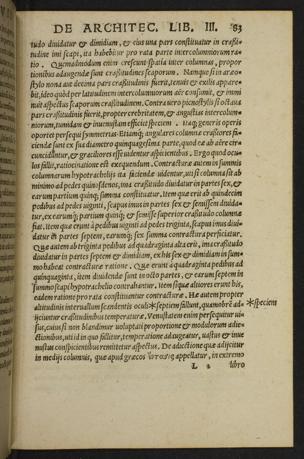 DE ARCHITEC. LIB. III. 83
tudo diuidatur & dimidiam, & eius una pars constituatur in crassi-
tudine imi scapi, ita habebitur pro rata parte intercolumniorum ra-
tio. Quemadmodum enim crescunt spatia inter columnas, propor
tionibus adaugendæ sunt crassitudines scaporum. Nanque si in aræo-
stylo nona aut decima pars crassitudinis fuerit, tenuis & exilis appare-
bit, ideo quod per latitudinem intercolumniorum aër consumit, & immi
nuit aspectus scaporum crassitudinem. Contra uero pycnostylis si octaua
pars crassitudinis fuerit, propter crebritatem, & angustias intercolum-
niorum, tumidam & inuenustam efficiet speciem. Itaq; generis operis
oportet persequi symmetrias. Etiamq; angulares columnæ crassiores fa-
ciendæ sunt ex sua diametro quinquagesima parte, quod eæ ab aëre cir-
cunciduntur, & graciliores esse uidentur aspicientibus. Ergo quod ocu-
lus fallit, ratiocinatione est exequendum. Contracturæ autem in summis
columnarum hypotracheliis ita faciendæ uidentur, uti si columna sit ab
minimo ad pedes quinosdenos, ima crassitudo diuidatur in partes sex, &
earum partium quinq; summa constituatur. Item quæ erit ab quindecim
pedibus ad pedes uiginti, scapus imus in partes sex & semissem diuida-
tur, ex earumq; partium quinq; & semisse superior crassitudo columnæ
fiat. item quæ erunt à pedibus uiginti ad pedes triginta, scapus imus diui-
datur in partes septem, earumq; sex summa contractura perficiatur.
Quæ autem ab triginta pedibus ad quadraginta alta erit, ima crassitudo
diuidatur in partes septem & dimidiam, ex his sex & dimidiam in sum-
mo habeat contracturæ ratione. Quæ erunt à quadraginta pedibus ad
quinquaginta, item diuidendæ sunt in octo partes, & earum septem in
summo scapi hypotrachelio contrahantur. Item si quæ altiores erunt his,
eadem ratione pro rata constituantur contracturæ. Hæ autem propter
altitudinis interuallum scandentis oculi *septiem fallunt, quamobrem ade *speciem
iiciuntur crassitudinibus temperaturæ. Venustatem enim persequitur ui-
sus, cuius si non blandimur uoluptati proportione & modulorum adie-
ctionibus, uti id in quo fallitur, temperatione adaugeatur, uastus & inue
nustus conspicientibus remittetur aspectus. De adiectione quæ adijcitur
in medijs columnis, quæ apud græcos ἔντασις appellatur, in extremo
L 2 libro